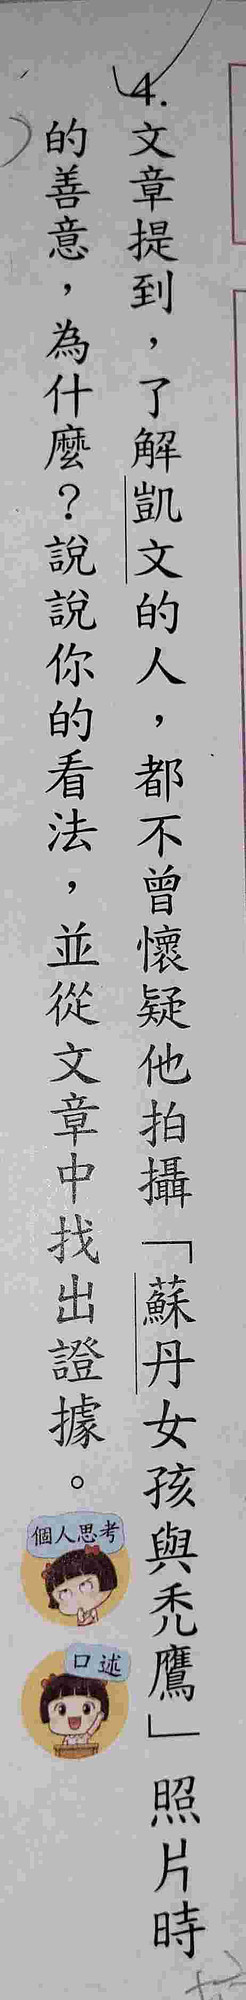 4.文章提到，了解凱文的人，都不曾懷疑他拍攝「蘇丹女孩與禿鷹」照片時
的善意，為什麼？說說你的看法，並從文章中找出證據。
個人思考
口述